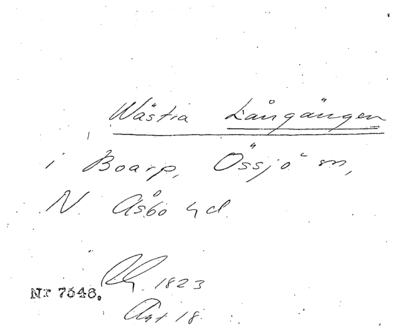 Wästra Långängen
i Boarp, Össjö sn,
N. Åsbo hd.
1823
Nr 7546.
Akt 18.